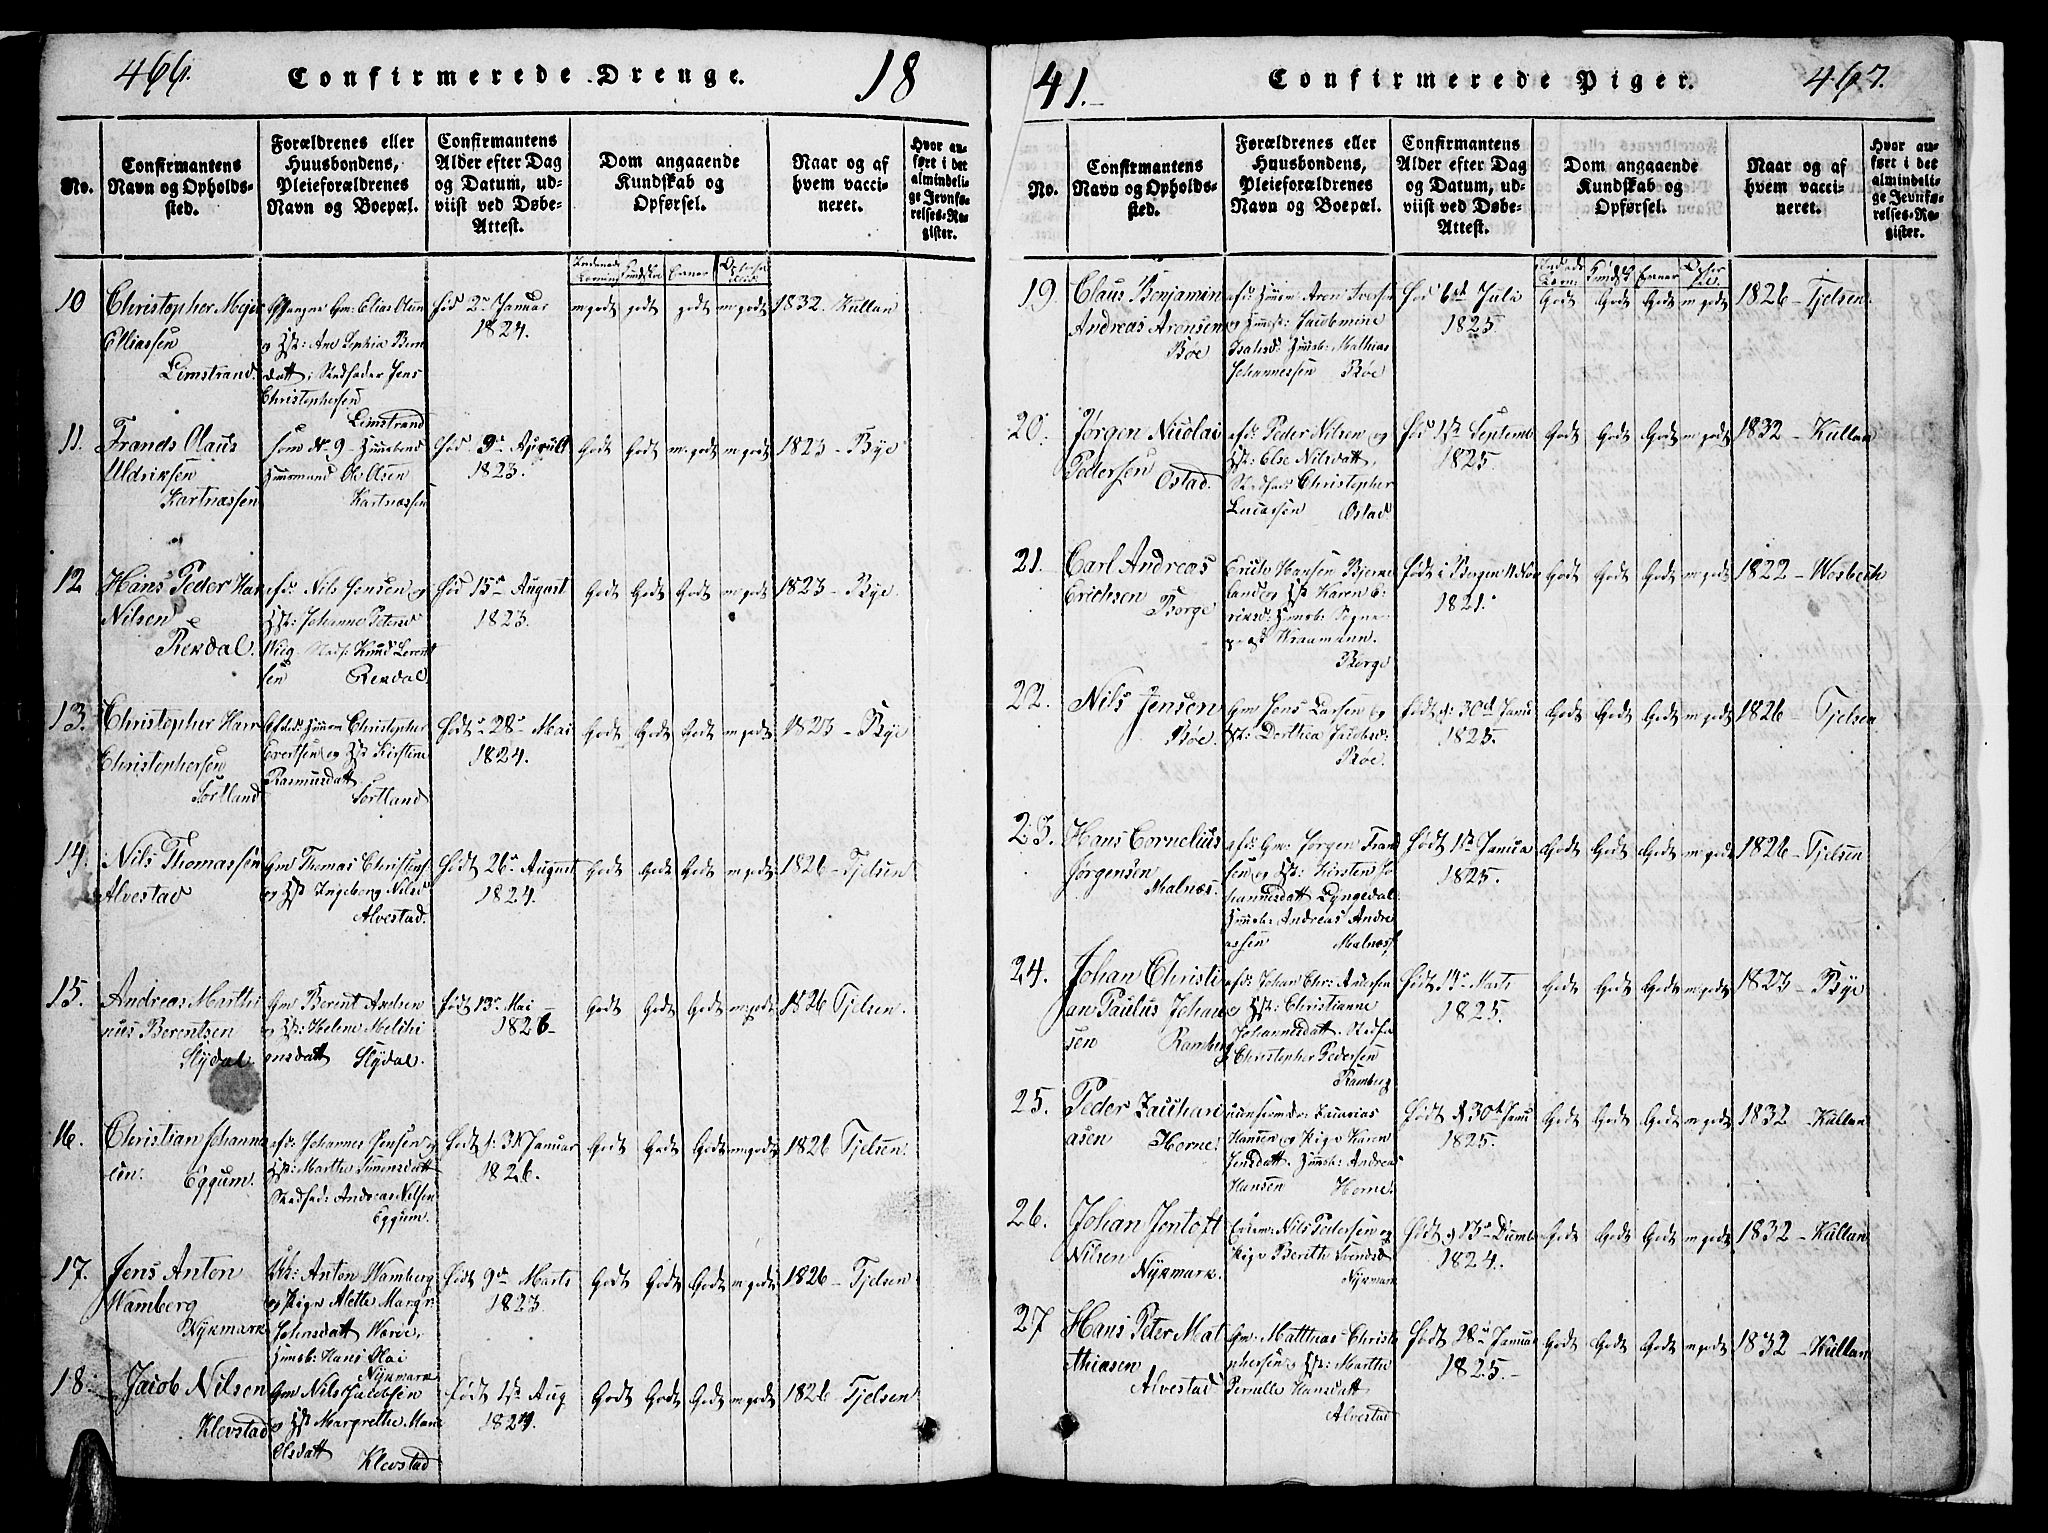 466. Confirmerede Drenge. 18
No.
Confirmantens Navn og Opholds-sted.
Forældrenes eller Huusbondens, Pleieforældrenes Navn og Boepæl.
Confirmantens Alder efter Dag og Datum, ud-viist ved Døbe-Attest.
Dom angaaende Kundskab og Opførsel.
Naar og af hvem vacci-neret.
Hvor an-ført i det almindeli-ge Jevnfø-relses-Re-gister.
10 Christopher Mejer
Elliassen
Limstrand.
Gm: Elias
Ane Sophia
Stedfader Jens
Christophersen
Limstrand
Fød 2 Januar
1824.
m godt godt godt m godt 1832. Kullan
11. Frands Olaus
Uldriksen
Kartnæssen
som No 9 Huusbond
Huusmand Ole Olsen
Kartnæssen
Fød 9 April
1823.
Godt Godt m godt m godt 1823 - Bye
12 Hans Peder Han
Nilsen
Rekdal.
Nils Jensen
Johanne Peters
Knud Lorent
sen Rekdal.
Fød 15 August
1823.
Godt Godt Godt m godt 1823 - Bye.
13. Christopher Han
Christophersen
Sortland
Christopher
Evertsen og Kirstene
Rasmusdatt
Sortland
Født 28 Mai
1824.
Godt Godt Godt m godt 1823 - Bye
14. Nils Thomassen
Alvestad
Gm Thomas Christens
Ingeborg Nilsd
Alvestad.
Født 26 August
1824.
Godt Godt Godt m godt 1826 - Tjelsen
15. Andreas Marthi
nus Berentsen
Slydal
Gm Berent Andsen
Helene Melchi
orsdatt Slydal.
Født 13 Mai
1826 -
Godt Godt Godt m godt 1826 Tjelsen.
16. Christian Johanne
sen. Eggum.
Johannes Jensen
Marthe Simensdatt
Stedfad: Andreas Nilsen
Eggum.
Født 31 Januar
1826.
Godt Godt Godt m godt 1826 Tjelsen.
17. Jens Anton
Wamberg
Nykmark
Anton Wamberg
og Pige Alethe Margr:
Johnsdatt Værøe,
Huusb: Hans Olai
Nykmark
Født 9 Marts
1823
Godt Godt Godt m godt 1826 - Tjelsen
18. Jacob Nilsen
Klevstad
Gm Nils Jacobsen
Margrethe Marie
Olsdatt
Klevstad
Født 1ste Aug
1824.
Godt Godt Godt m godt 1826 - Tjelsen
41. Confirmerede Piger. 467.
No.
Confirmantens Navn og Opholds-sted.
Forældrenes eller Huusbondens, Pleieforældrenes Navn og Boepæl.
Confirmantens Alder efter Dag og Datum, ud-viist ved Døbe-Attest.
Dom angaaende Kundskab og Opførsel.
Naar og af hvem vacci-neret.
Hvor an-ført i det almindeli-ge Jevnfø-relses-Re-gister.
19. Claus Benjamin
Andreas Arensen
Bøe
Aron Iversen
Jacobmine
Isaksd: Huusb: Mathias
Johannessen Bøe
Fød 6te Julii
1825.
Godt Godt Godt m godt 1826 - Tjelsen.
20. Jørgen Nicolai
Pedersen Ostad.
Peder Nilsen og
Else Nilsdatt,
Stedfad Christopher
Lucassen Ostad
Fød 1ste Septemb
1825.
Godt Godt Godt m godt 1832 - Kullan
21. Carl Andreas
Erichsen Borge
Hansen Bjerne
land og Karen E
riksd: Huusb: Sogne
præst Kraamann.
Borge
Født i Bergen 11 Nov
1821.
Godt Godt Godt m godt 1822 - Wosbech
22. Nils Jensen
Bøe.
Gm Jens Larsen og
Dorthea Jacobsd:
Bøe.
Født d: 30d Janu
1825.
Godt Godt Godt m godt 1826 - Tjelsen
23. Hans Cornelius
Jørgensen
Malnæs.
Gm: Jørgen Fran
sen og Kirsten Jo
hannesdatt Lyngedal.
Huusb: Andreas Andre
assen Malnæs
Født 1ste Janua
1825.
Godt Godt Godt m godt 1826 - Tjelsen
24. Johan Christi
an Paulus Johan
sen Ramberg
Johan Chr: Andersen
Christianne
Johannesdatt. Stedfa
Christopher Pedersen
Ramberg
Født 13 Marts
1825.
Godt Godt Godt m godt 1823 - Bye
25. Peder Zachari
asen Horne.
Zacarias
Hansen og Pige Karen
Jensdatt. Huusb: Andreas
Hansen Horne.
Født d 30te Janu
1825.
Godt Godt Godt m godt 1832 - Kullan
26. Johan Jentoft
Nilsen Nykmark.
Nils Pedersen og
Pige Berithe Svendsd
Nykmark
Født 13 Decmb
1824.
Godt Godt Godt m godt 1832 - Kullan
27 Hans Peter Mat
thiasen
Alvestad
Gm: Matthias Christo
phersen Marthe
Pernille Hansdatt
Alvestad
Født 28 Januar
1825. -
Godt Godt Godt m godt 1832 - Kullan